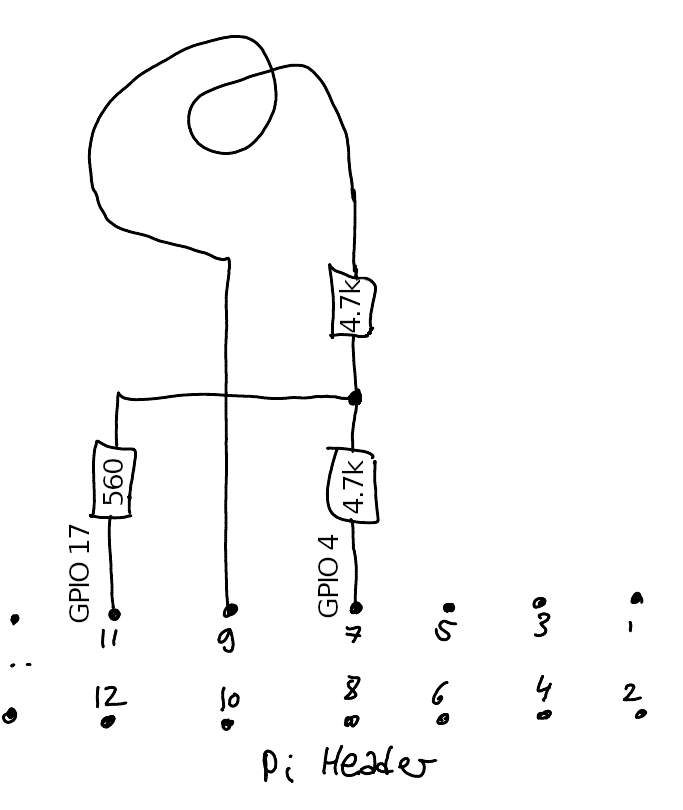 4.7k
560
4.7k
GPIO 17
GPIO 4
11 9 7 5 3 1
12 10 8 6 4 2
Pi Header